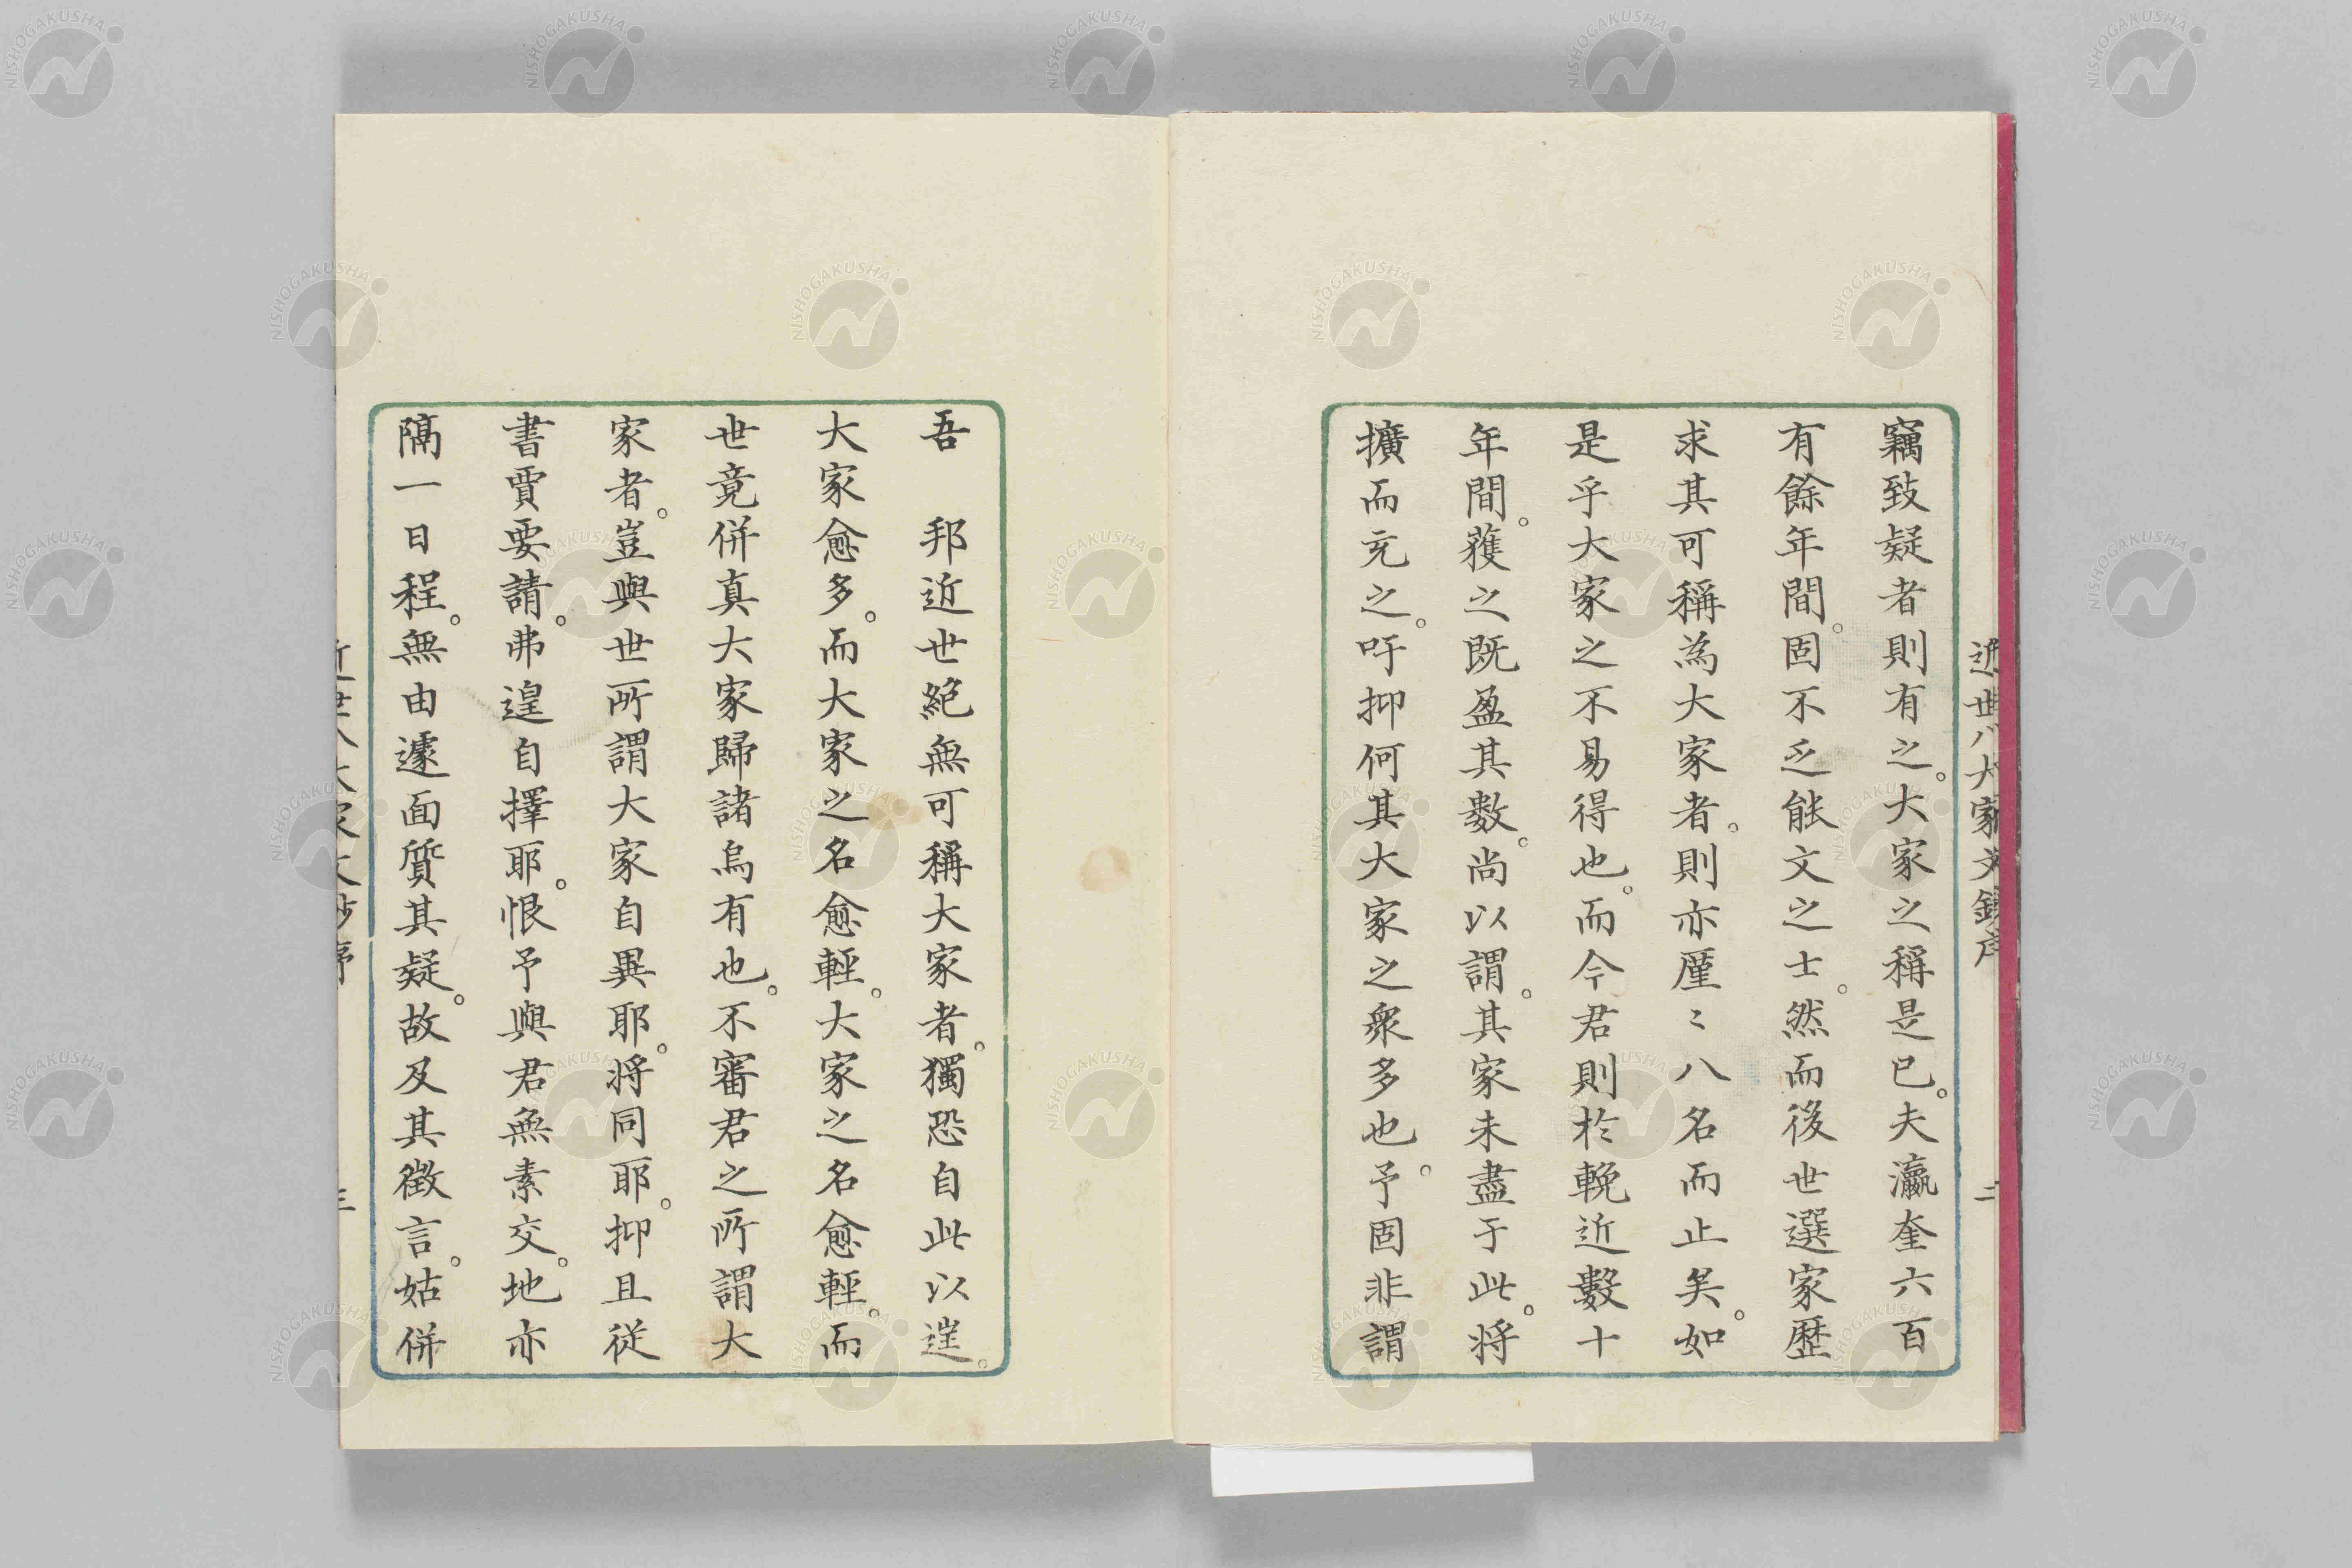 竊致疑者則有之。大家之稱是已。夫瀛奎六百
有餘年間。固不乏能文之士。然而後世選家歷
求其可稱為大家者。則亦厪〻八名而止矣。如
是乎大家之不易得也。而今君則於輓近數十
年間。蒦之既盈其數。尚以謂。其家未盡于此。将
擴而充之。吁抑何其大家之衆多也。予固非謂
吾　邦近世絕無可稱大家者。獨恐自此以逞。
大家愈多。而大家之名愈輕。大家之名愈輕。而
世竟併真大家歸諸烏有也。不審君之所謂大
家者。豈與世所謂大家自異耶。将同耶。抑且從
書賈要請。弗遑自擇耶。恨予與君無素交。地亦
隔一日程。無由遽面質其疑。故及其徵言。姑併